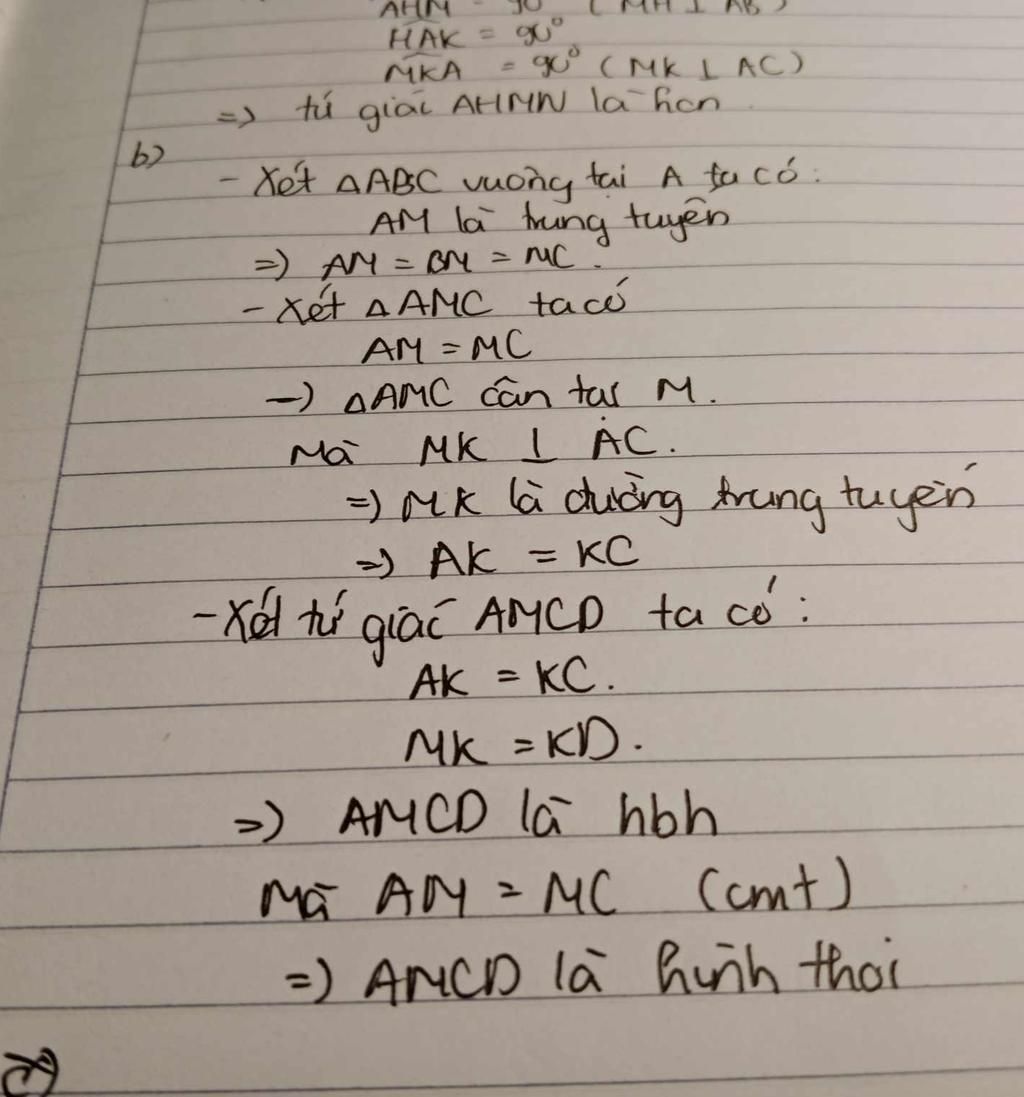 AHM = 90° ( MH ⊥ AB )
HAK = 90°
MKA = 90° ( MK ⊥ AC )
=> tứ giác AHMN là hcn
b)
- Xét △ABC vuông tại A ta có :
AM là trung tuyến
=> AM = BM = MC .
- Xét △AMC ta có
AM = MC
-> △AMC cân tại M .
Mà MK ⊥ AC .
=> MK là đường trung tuyến
=> AK = KC
- Xét tứ giác AMCD ta có :
AK = KC .
MK = KD .
=> AMCD là hbh
Mà AM = MC (cmt)
=> AMCD là hình thoi
c)